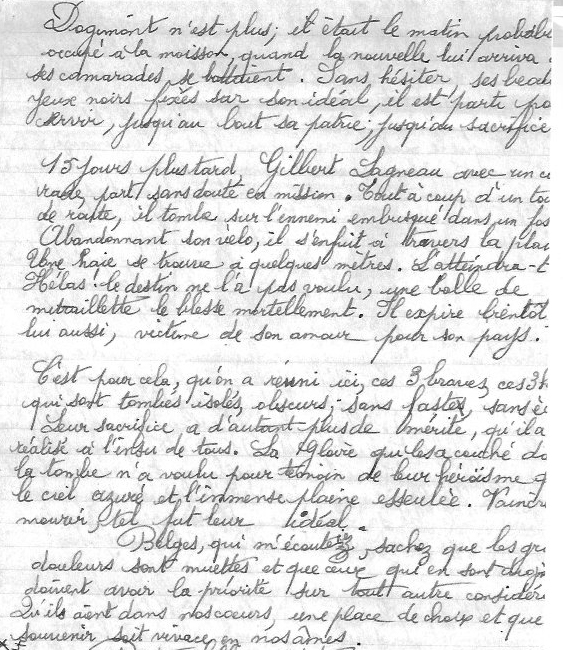 Dagumont n'est plus; il était le matin
occupé à la moisson, quand la nouvelle lui arriva
ses camarades, se battaient. Sans hésiter, ses beau
yeux noirs fixés sur son idéal, il est parti po
servir, jusqu'au bout sa patrie; jusqu'au sacrifice
15 jours plus tard, Gilbert Lagneau avec un c
rade, part sans doute en mission. Tout à coup d'un to
de route, il tombe sur l'ennemi embusqué dans un fos
Abandonnant son vélo, il s'enfuit à travers la plai
Une haie se trouve à quelques mètres. L'atteindra-t
Hélas! le destin ne l'a pas voulu, une balle de
mitraillette le blesse mortellement. Il expire bientôt
lui aussi, victime de son amour pour son pays.
C'est pour cela, qu'on a réuni ici, ces 3 braves, ces 3 h
qui sont tombés isolés, obscurs, sans fastes, sans
Leur sacrifice a d'autant plus de mérite, qu'il a
réalisé à l'insu de tous. La Gloire qui les a couché da
la tombe n'a voulu pour témoin de leur héroïsme q
le ciel azuré et l'immense plaine esseulée. Vaincr
mourir, tel fut leur idéal.
Belges, qui m'écoutez, sachez que les gr
douleurs sont muettes et que ceux qui en sont
doivent avoir la priorité sur tout autre considér
Qu'ils aient dans nos cœurs, une place de choix et que
souvenir soit vivace en nos âmes.